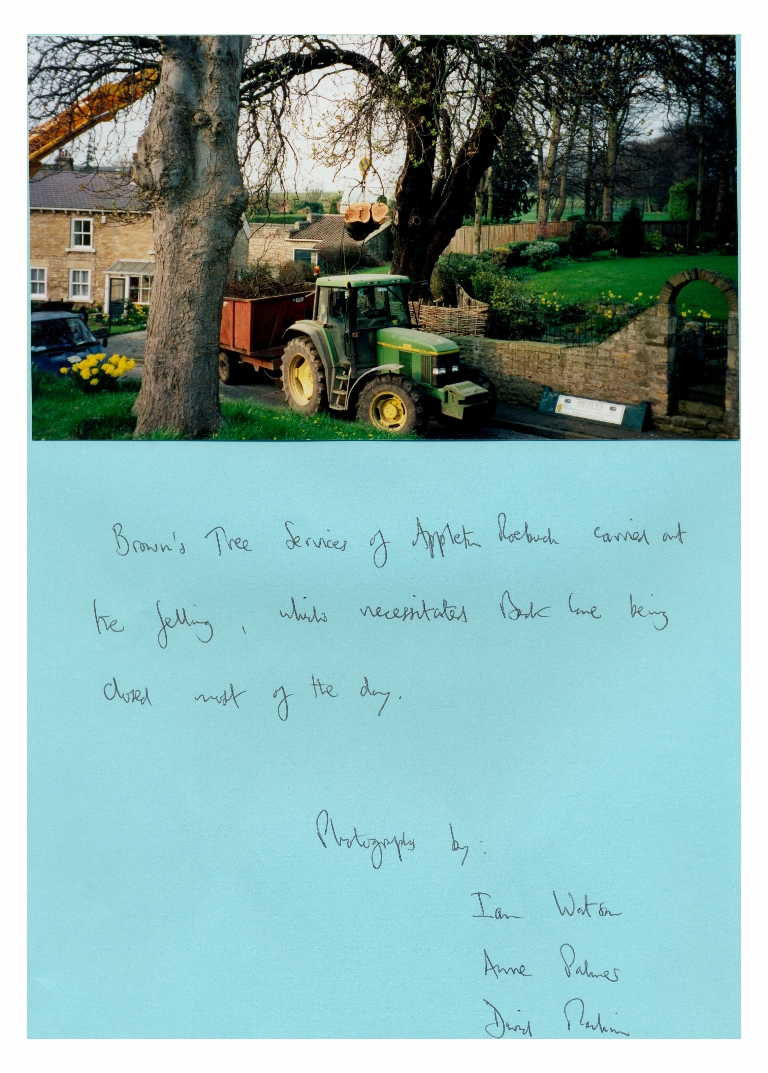 Brown's Tree Services of Appleton Roebuck carried out
the felling, which necessitated Back Lane being
closed most of the day.
Photographs by:
Ian Watson
Anne Palmer
David